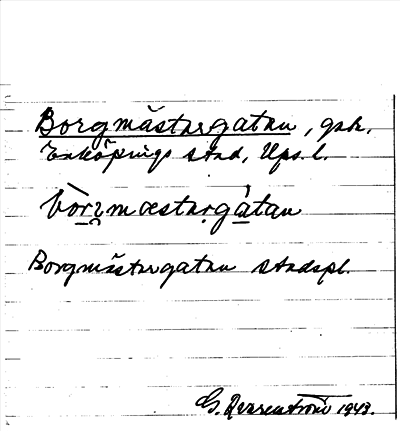 Borgmästargatan, gata,
Enköpings stad, Upps. l.
bòrʒmæstargàtan
Borgmästargatan stadspl.
G. 1943.